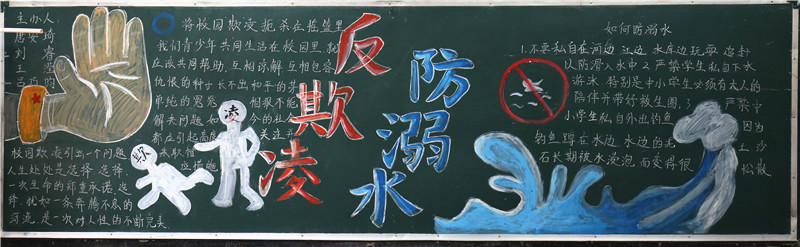 主办人
唐安琦
刘 睿
王
将校园欺凌 扼杀在摇篮里
我们青少年共同生活在校园里,就
应该共同帮助,互相谅解 互相包容
仇恨的种子长不出和平的芽
单纯的宽宽 相狠不能
解决问题 如 今的社会
都应引起高度 关注并
采取措
施
凌
欺
校园欺凌引出一个问题
人生处处是选择 选择
一次生命的郑重承诺,选
择,犹如一条奔腾不息的
河流,是一次对人性的不断完美
反欺凌
防溺水
如何防溺水
1.不要私自在河边 江边 水库边玩耍 追赶
以防滑入水中2.严禁学生私自下水
游泳 特别是中小学生必须有大人的
陪伴并带好救生圈,3 严禁中
小学生私自外出钓鱼 因为
钓鱼蹲在水边 水边的泥 土 沙
石长期被水浸泡而变得很 松散